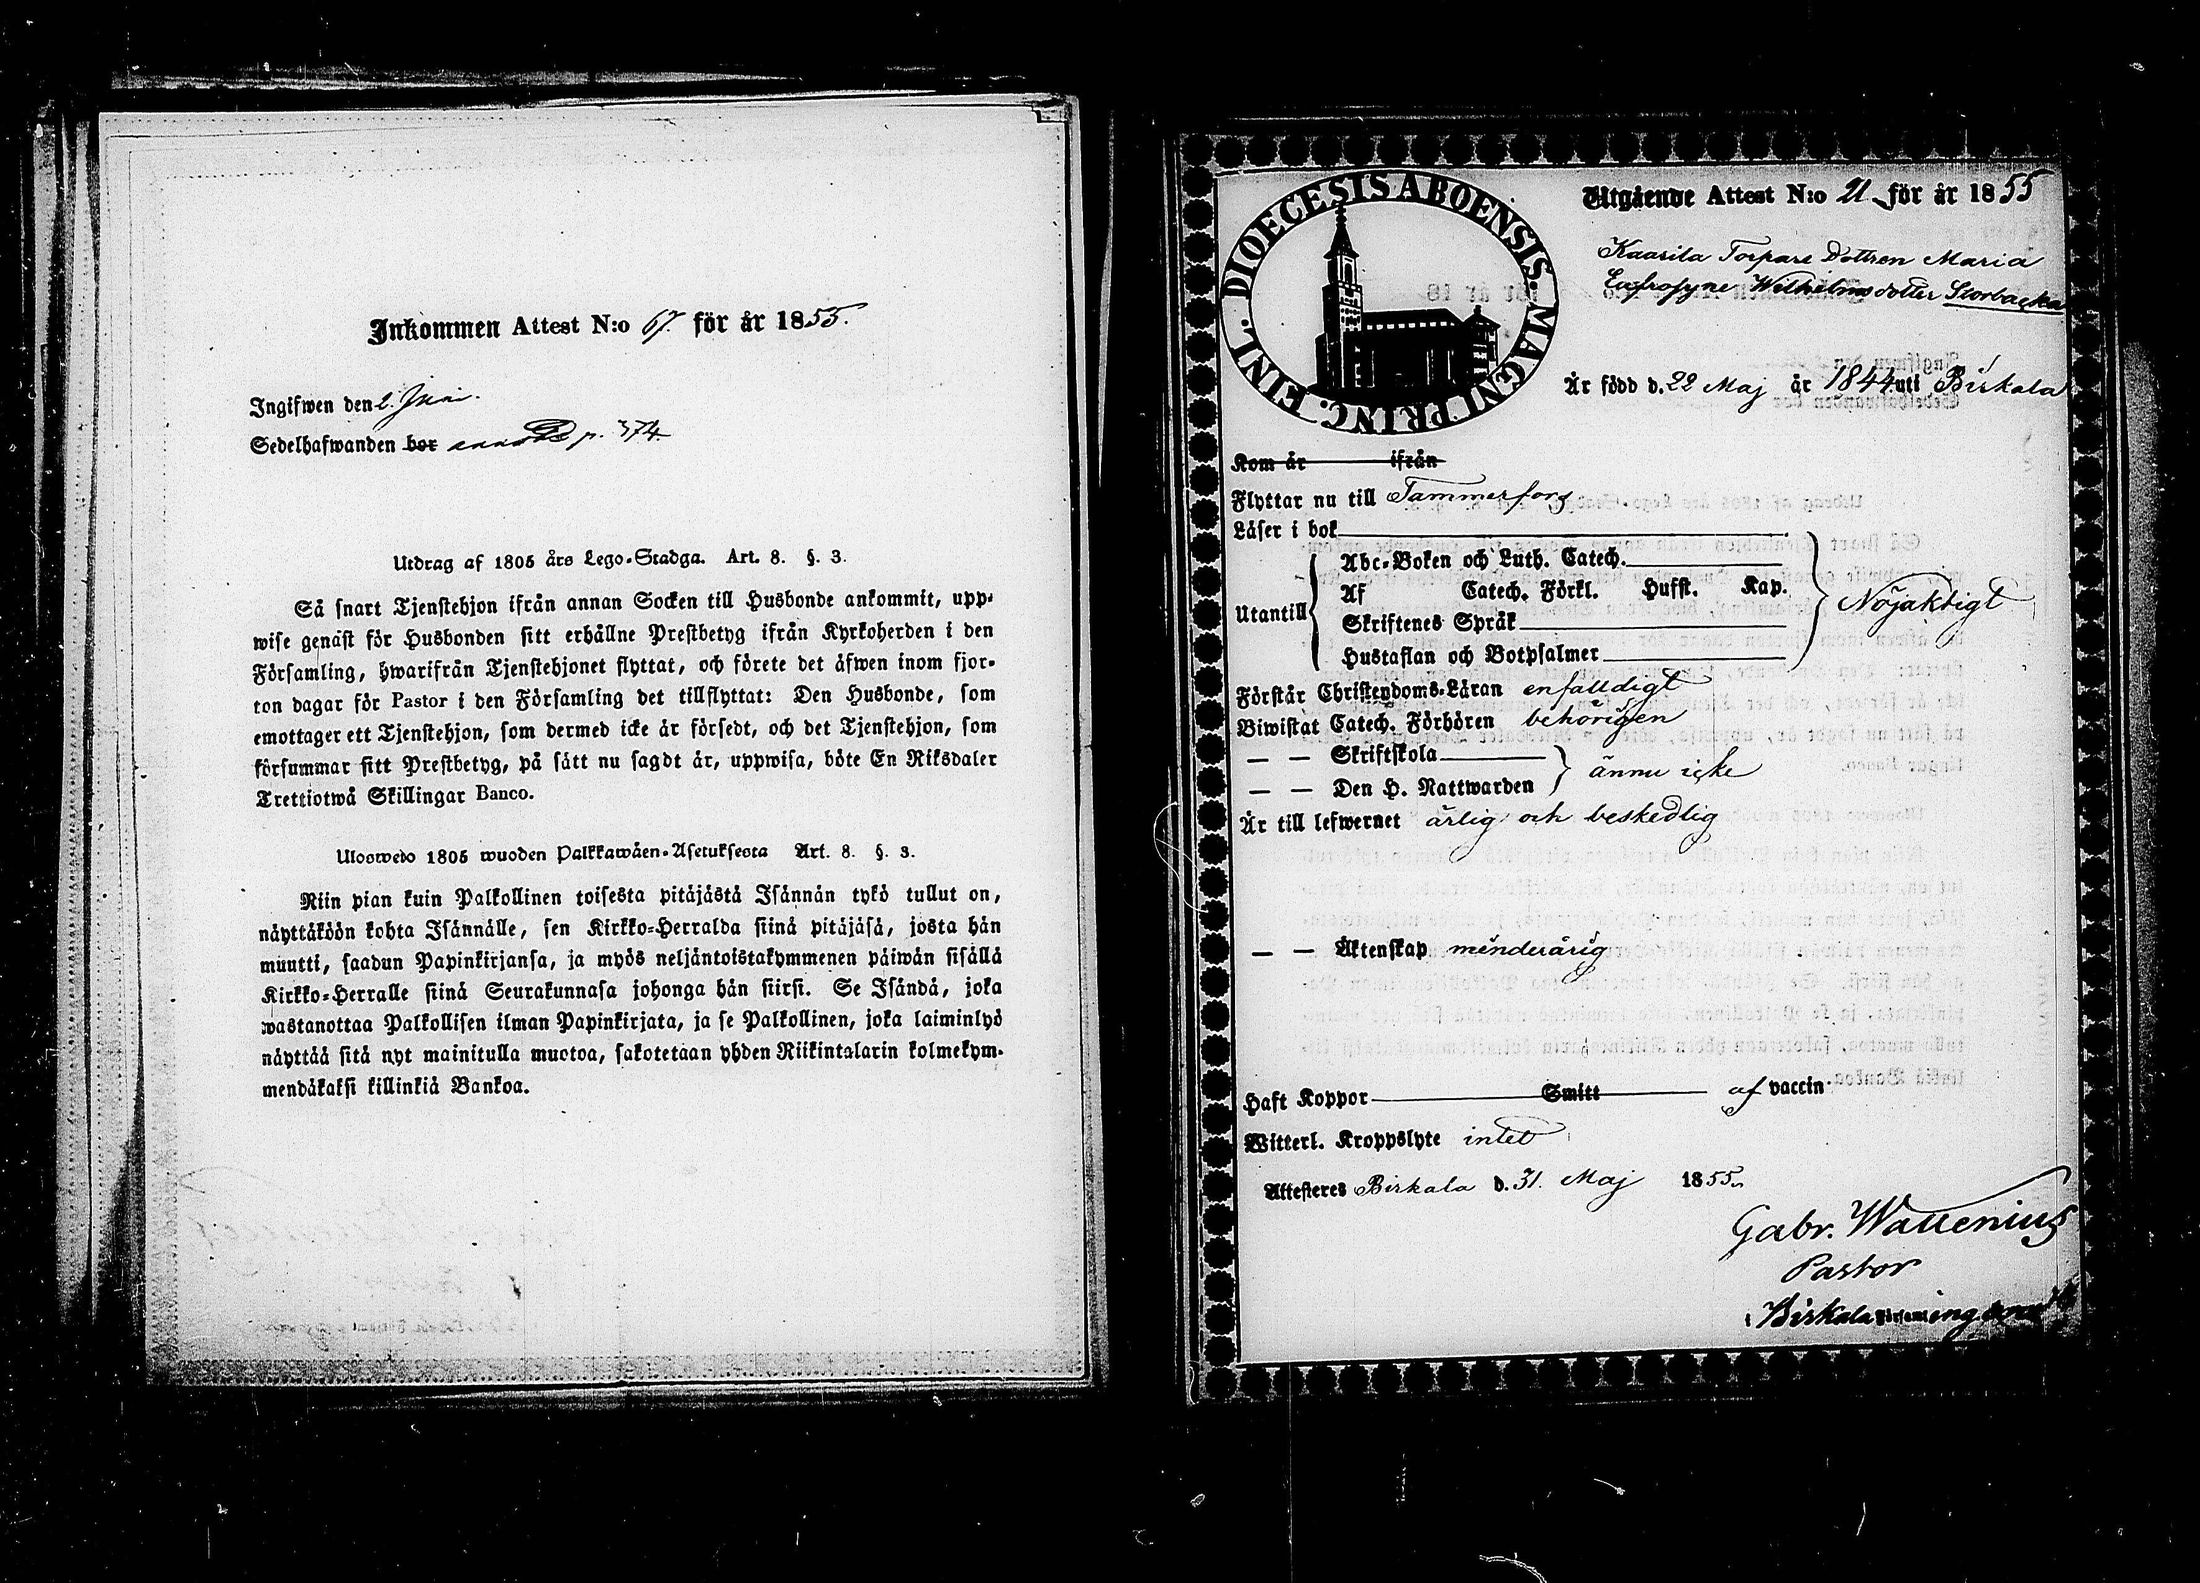 Inkommen Attest N:o 67. för år 1855.
Ingifwen den 2. Juni.
Sedelhafwanden bor p. 374
Utdrag af 1805 års Lego-Stadga. Art. 8. §. 3.
Så snart Tjenstehjon ifrån annan Socken till Husbonde ankommit, upp-
wise genast för Husbonden sitt erhållne Prestbetyg ifrån Kyrkoherden i den
Församling, hwarifrån Tjenstehjonet flyttat, och förete det äfwen inom fjor-
ton dagar för Pastor i den Församling det tillflyttat: Den Husbonde, som
emottager ett Tjenstehjon, som dermed icke är försedt, och det Tjenstehjon, som
försummar sitt Prestbetyg, på sätt nu sagdt är, uppwisa, böte En Riksdaler
Trettiotwå Skillingar Banco.
Uloswedo 1805 wuoden Palkkawäen-Asetuksesta Art. 8. §. 3.
Niin pian kuin Palkollinen toisesta pitäjästä Isännän tykö tullut on,
näyttäköön kohta Isännälle, sen Kirkko-Herralda siinä pitäjäsä, josta hän
muutti, saadun Papinkirjansa, ja myös neljäntoistakymmenen päiwän sisällä
Kirkko-Herralle siinä Seurakunnasa johonga hän siirsi. Se Isändä, joka
wastanottaa Palkollisen ilman Papinkirjata, ja se Palkollinen, joka laiminlyö
näyttää sitä nyt mainitulla muotoa, sakotetaan yhden Riikintalarin kolmekym-
mendäkaksi killinkiä Bankoa.
DIOECESIS ABOENSIS. MAGNI PRINC. FINL.
Utgående Attest N:o 21 för år 1855
Kaarila Torpare Dottren Maria
Eufrosyne Wilhelmsdotter Storbacka
Är född d. 22 Maj år 1844 uti Birkala
Kom år ifrån
Flyttar nu till Tammerfors
Läser i bok
Utantill
Abc-Boken och Luth. Catech.
Af Catech. Förkl. Hufst. Kap.
Skriftenes Språk
Hustaflan och Botpsalmer
Nöjaktigt
Förstår Christendoms-Läran enfaldigt
Biwistat Catech. Förhören behörigen
— — Skriftskola
— — Den H. Nattwarden
ännu icke
Är till lefwernet ärlig och beskedlig
— — Äktenskap minderårig
Haft Koppor Smitt af vaccin.
Witterl. Kroppslyte intet
Attesteres Birkala d. 31. Maj 1855
Gabr. Wallenius
Pastor
i Birkala